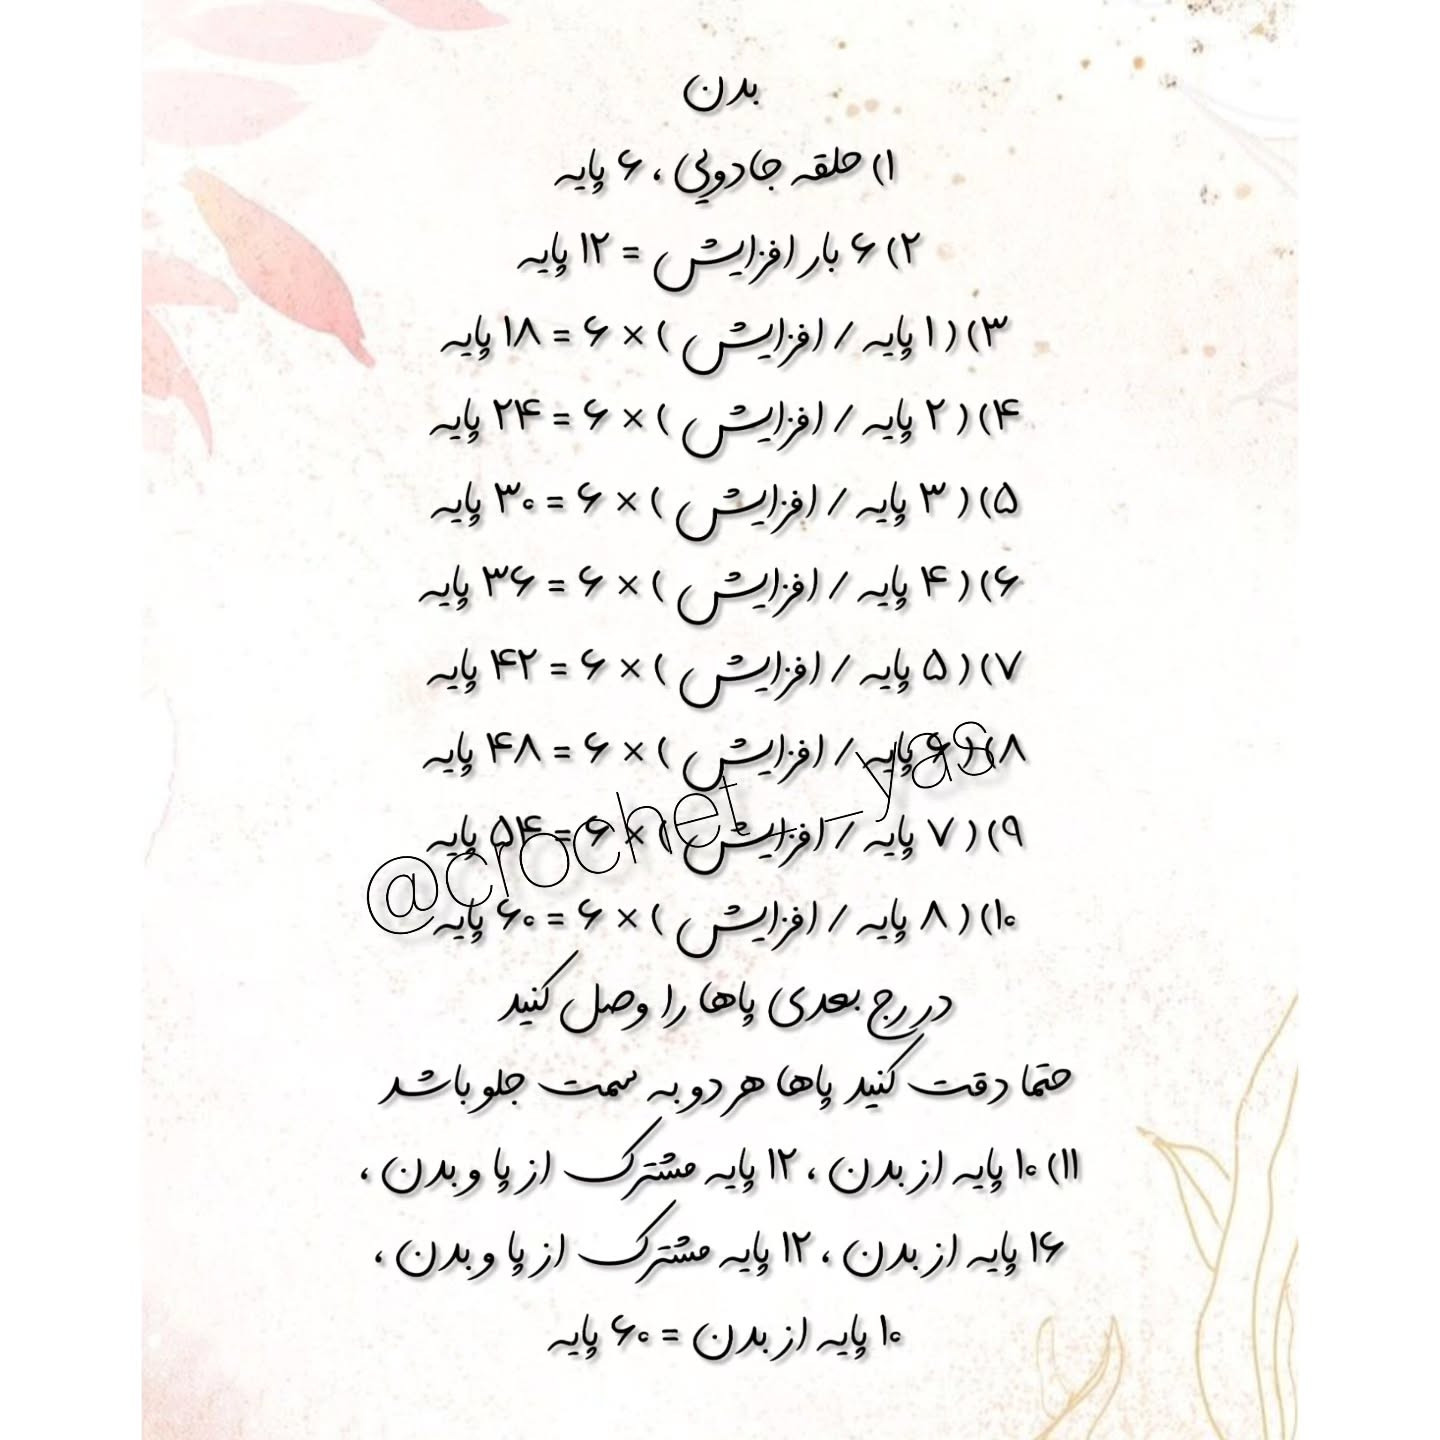 بدن
۱) حلقه جادویی ، ۶ پایه
۲) ۶ بار افزایش = ۱۲ پایه
۳) ( ۱ پایه / افزایش ) × ۶ = ۱۸ پایه
۴) ( ۲ پایه / افزایش ) × ۶ = ۲۴ پایه
۵) ( ۳ پایه / افزایش ) × ۶ = ۳۰ پایه
۶) ( ۴ پایه / افزایش ) × ۶ = ۳۶ پایه
۷) ( ۵ پایه / افزایش ) × ۶ = ۴۲ پایه
۸) ( ۶ پایه / افزایش ) × ۶ = ۴۸ پایه
۹) ( ۷ پایه / افزایش ) × ۶ = ۵۴ پایه
@crochet__yas
۱۰) ( ۸ پایه / افزایش ) × ۶ = ۶۰ پایه
در رج بعدی پاها را وصل کنید
حتما دقت کنید پاها هر دو به سمت جلو باشد
۱۱) ۱۰ پایه از بدن ، ۱۲ پایه مشترک از پا و بدن ،
۱۶ پایه از بدن ، ۱۲ پایه مشترک از پا و بدن ،
۱۰ پایه از بدن = ۶۰ پایه